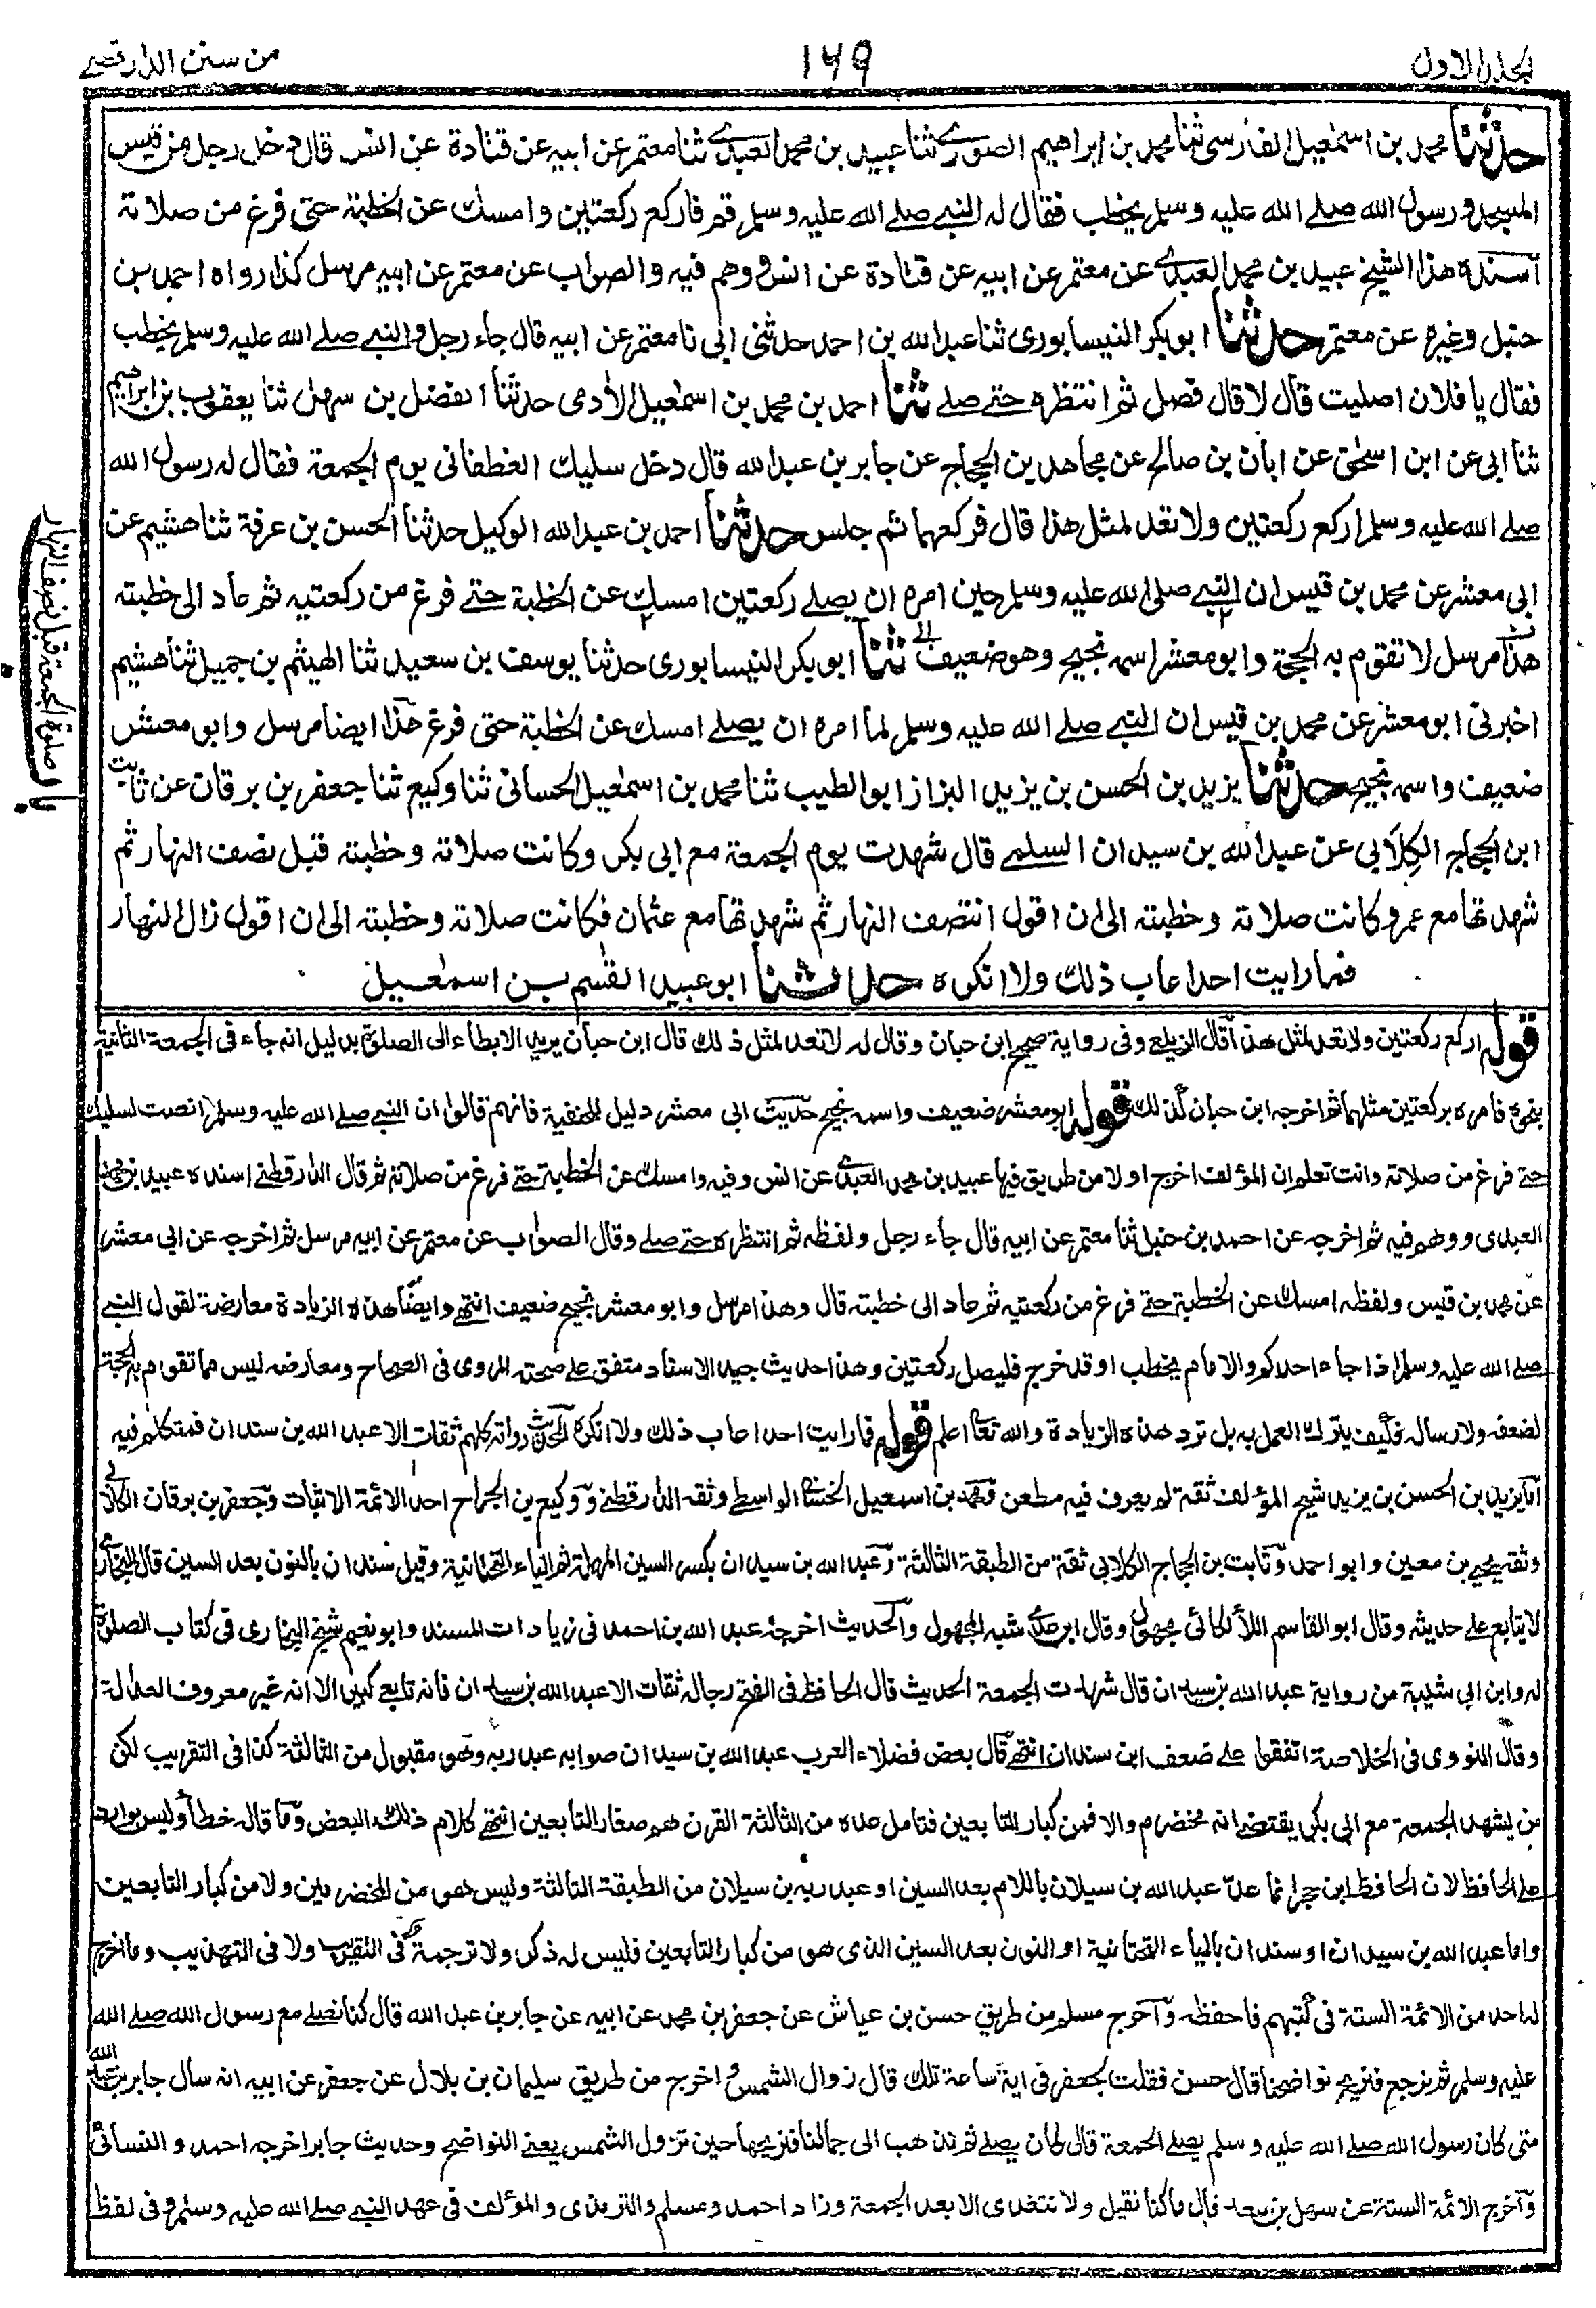 المجلد الاول
١٦٩
من سنن الدارقطنے
حدثنا محمد بن اسمٰعيل الفارسى ثنا محمد بن ابراهيم الصورے ثنا عبيد بن محمد العبدے ثنا معتمر عن ابيه عن قتادة عن انس قال دخل رجل من قيس
المسجد و رسول الله صلے الله عليه وسلم يخطب فقال له النبے صلے الله عليه وسلم قم فاركع ركعتين وامسك عن الخطبة حتى فرغ من صلاته
اسنده هذا الشيخ عبيد بن محمد العبدے عن معتمر عن ابيه عن قتادة عن انس و وهم فيه والصواب عن معتمر عن ابيه مرسل كذا رواه احمد بن
حنبل وغيره عن معتمر حدثنا ابو بكر النيسابورى ثنا عبد الله بن احمد حدثنى ابى نا معتمر عن ابيه قال جاء رجل والنبے صلے الله عليه وسلم يخطب
فقال يا فلان اصليت قال لا قال فصل ثم انتظره حتے صلے ثنا احمد بن محمد بن اسمٰعيل الاٰدمى حدثنا الفضل بن سهل ثنا يعقوب بن ابراهيم
ثنا ابى عن ابن اسحٰق عن ابان بن صالح عن مجاهد بن الحجاج عن جابر بن عبد الله قال دخل سليك الغطفانى يوم الجمعة فقال له رسول الله
صلے الله عليه وسلم اركع ركعتين ولا تعد لمثل هذا قال فركعهما ثم جلس حدثنا احمد بن عبد الله الوكيل حدثنا الحسن بن عرفة ثنا هشيم عن
ابى معشر عن محمد بن قيس ان النبے صلى الله عليه وسلم حين امره ان يصلے ركعتين امسك عن الخطبة حتے فرغ من ركعتيه ثم عاد الى خطبته
هذا مرسل لا تقوم به الحجة وابو معشر اسمه نجيح وهو ضعيف ثنا ابو بكر النيسابورى حدثنا يوسف بن سعيد ثنا الهيثم بن جميل ثنا هشيم
اخبرنى ابو معشر عن محمد بن قيس ان النبے صلے الله عليه وسلم لما امره ان يصلے امسك عن الخطبة حتى فرغ هذا ايضا مرسل وابو معشر
ضعيف واسمه نجيح حدثنا يزيد بن الحسن بن يزيد البزاز ابو الطيب ثنا محمد بن اسمٰعيل الحسانى ثنا وكيع ثنا جعفر بن برقان عن ثابت
ابن الحجاج الكلابى عن عبد الله بن سيدان السلمے قال شهدت يوم الجمعة مع ابى بكر وكانت صلاته وخطبته قبل نصف النهار ثم
شهدتها مع عمر وكانت صلاته وخطبته الى ان اقول انتصف النهار ثم شهدتها مع عثمان فكانت صلاته وخطبته الى ان اقول زال النهار
فما رايت احدا عاب ذلك ولا انكره حدثنا ابو عبيد القٰسم بن اسمٰعيل
باب صلوة الجمعة قبل نصف النهار
قوله اركع ركعتين ولا تعد لمثل هذا قال الزيلعے وفى رواية صحيح ابن حبان وقال له لا تعد لمثل ذلك قال ابن حبان يريد الابطاء الى الصلوٰة بدليل انه جاء فى الجمعة الثانية
بنحوه فامره بركعتين مثلهما ثم اخرجه ابن حبان كذلك قوله ابو معشر ضعيف واسمه نجيح حديث ابى معشر دليل للحنفية فانهم قالوا ان النبے صلے الله عليه وسلم انصت لسليك
حتے فرغ من صلاته وانت تعلم ان المؤلف اخرج اولا من طريق فيها عبيد بن محمد العبدے عن انس وفيه وامسك عن الخطبة حتے فرغ من صلاته ثم قال الدارقطنے اسنده عبيد بن محمد
العبدى ووهم فيه ثم اخرجه عن احمد بن حنبل ثنا معتمر عن ابيه قال جاء رجل ولفظه ثم انتظره حتے صلے وقال الصواب عن معتمر عن ابيه مرسل ثم اخرجه عن ابى معشر
عن محمد بن قيس ولفظه امسك عن الخطبة حتے فرغ من ركعتيه ثم عاد الى خطبته قال وهذا مرسل وابو معشر نجيح ضعيف انتهے وايضا هذه الزيادة معارضة لقول النبے
صلے الله عليه وسلم اذا جاء احدكم والامام يخطب او قد خرج فليصل ركعتين وهذا حديث جيد الاسناد متفق علے صحته المروى فى الصحاح ومعارضه ليس مما تقوم به الحجة
لضعفه ولارساله فكيف يترك العمل به بل ترد هذه الزيادة والله تعا اعلم قوله فما رايت احدا عاب ذلك ولا انكره الحديث رواته كلهم ثقات الا عبد الله بن سندان فمتكلم فيه
اما يزيد بن الحسن بن يزيد شيخ المؤلف ثقة لم يعرف فيه مطعن ومحمد بن اسمعيل الحسانى الواسطى وثقه الدارقطنے ووكيع بن الجراح احد الائمة الاثبات وجعفر بن برقان الكلابى
وثقه يحيے بن معين وابو احمد وثابت بن الحجاج الكلابى ثقة من الطبقة الثالثة وعبد الله بن سيدان بكسر السين المهملة ثم الياء التحتانية وقيل سندان بالنون بعد السين قال البخارى
لا يتابع علے حديثه وقال ابو القاسم اللألكائى مجهول وقال ابن عدے شبه المجهول والحديث اخرجه عبد الله بن احمد فى زيادات المسند وابو نعيم شيخ البخارى فى كتاب الصلوٰة
له وابن ابى شيبة من رواية عبد الله بن سيدان قال شهدت الجمعة الحديث قال الحافظ فى الفتح رجاله ثقات الا عبد الله بن سيدان فانه تابعى كبير الا انه غير معروف العدالة
وقال النووى فى الخلاصة اتفقوا علے ضعف ابن سندان انتهے قال بعض فضلاء العرب عبد الله بن سيدان صوابه عبد ربه وهو مقبول من الثالثة كذا فى التقريب لكن
من يشهد الجمعة مع ابى بكر يقتضے انه مخضرم والا فمن كبار التابعين فتامل عده من الثالثة القرن هم صغار التابعين انتهے كلام ذلك البعض وما قاله خطأ وليس بوارد
على الحافظ لان الحافظ ابن حجر انما عدّ عبد الله بن سيلان باللام بعد السين او عبد ربه بن سيلان من الطبقة الثالثة وليس هو من المخضرمين ولا من كبار التابعين
واما عبد الله بن سيدان او سندان بالياء التحتانية او النون بعد السين الذى هو من كبار التابعين فليس له ذكر ولا ترجمة فى التقريب ولا فى التهذيب وما اخرج
له احد من الائمة الستة فى كتبهم فاحفظه واخرج مسلم من طريق حسن بن عياش عن جعفر بن محمد عن ابيه عن جابر بن عبد الله قال كنا نصلے مع رسول الله صلے الله
عليه وسلم ثم نرجع فنريح نواضحنا قال حسن فقلت لجعفر فى اية ساعة تلك قال زوال الشمس واخرج من طريق سليمان بن بلال عن جعفر عن ابيه انه سال جابر بن عبد الله
متى كان رسول الله صلے الله عليه وسلم يصلے الجمعة قال كان يصلے ثم نذهب الى جمالنا فنريحها حين تزول الشمس يعنے النواضح وحديث جابر اخرجه احمد والنسائى
واخرج الائمة الستة عن سهل بن سعد قال ما كنا نقيل ولا نتغدى الا بعد الجمعة وزاد احمد ومسلم والترمذى والمؤلف فى عهد النبے صلے الله عليه وسلم وفى لفظ